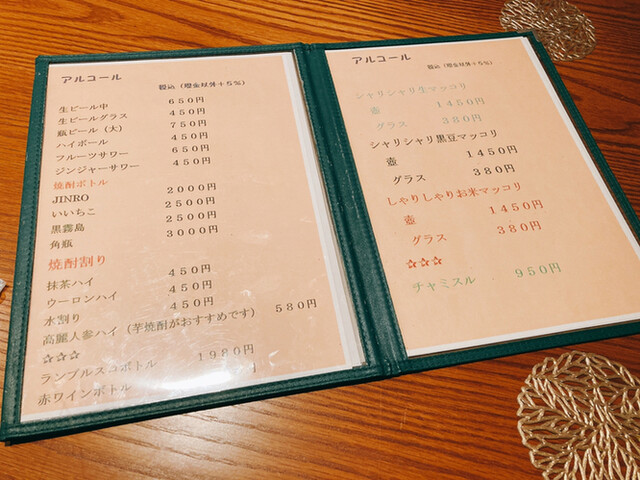 アルコール
税込（現金以外＋５％）
生ビール中 ６５０円
生ビールグラス ４５０円
瓶ビール（大） ７５０円
ハイボール ４５０円
フルーツサワー ６５０円
ジンジャーサワー ４５０円
焼酎ボトル
JINRO ２０００円
いいちこ ２５００円
黒霧島 ２５００円
角瓶 ３０００円
焼酎割り
抹茶ハイ ４５０円
ウーロンハイ ４５０円
水割り ４５０円
高麗人参ハイ（芋焼酎がおすすめです） ５８０円
☆☆☆
ランブルスコボトル １９８０円
赤ワインボトル
アルコール
税込（現金以外＋５％）
シャリシャリ生マッコリ
壺 １４５０円
グラス ３８０円
シャリシャリ黒豆マッコリ
壺 １４５０円
グラス ３８０円
しゃりしゃりお米マッコリ
壺 １４５０円
グラス ３８０円
☆☆☆
チャミスル ９５０円